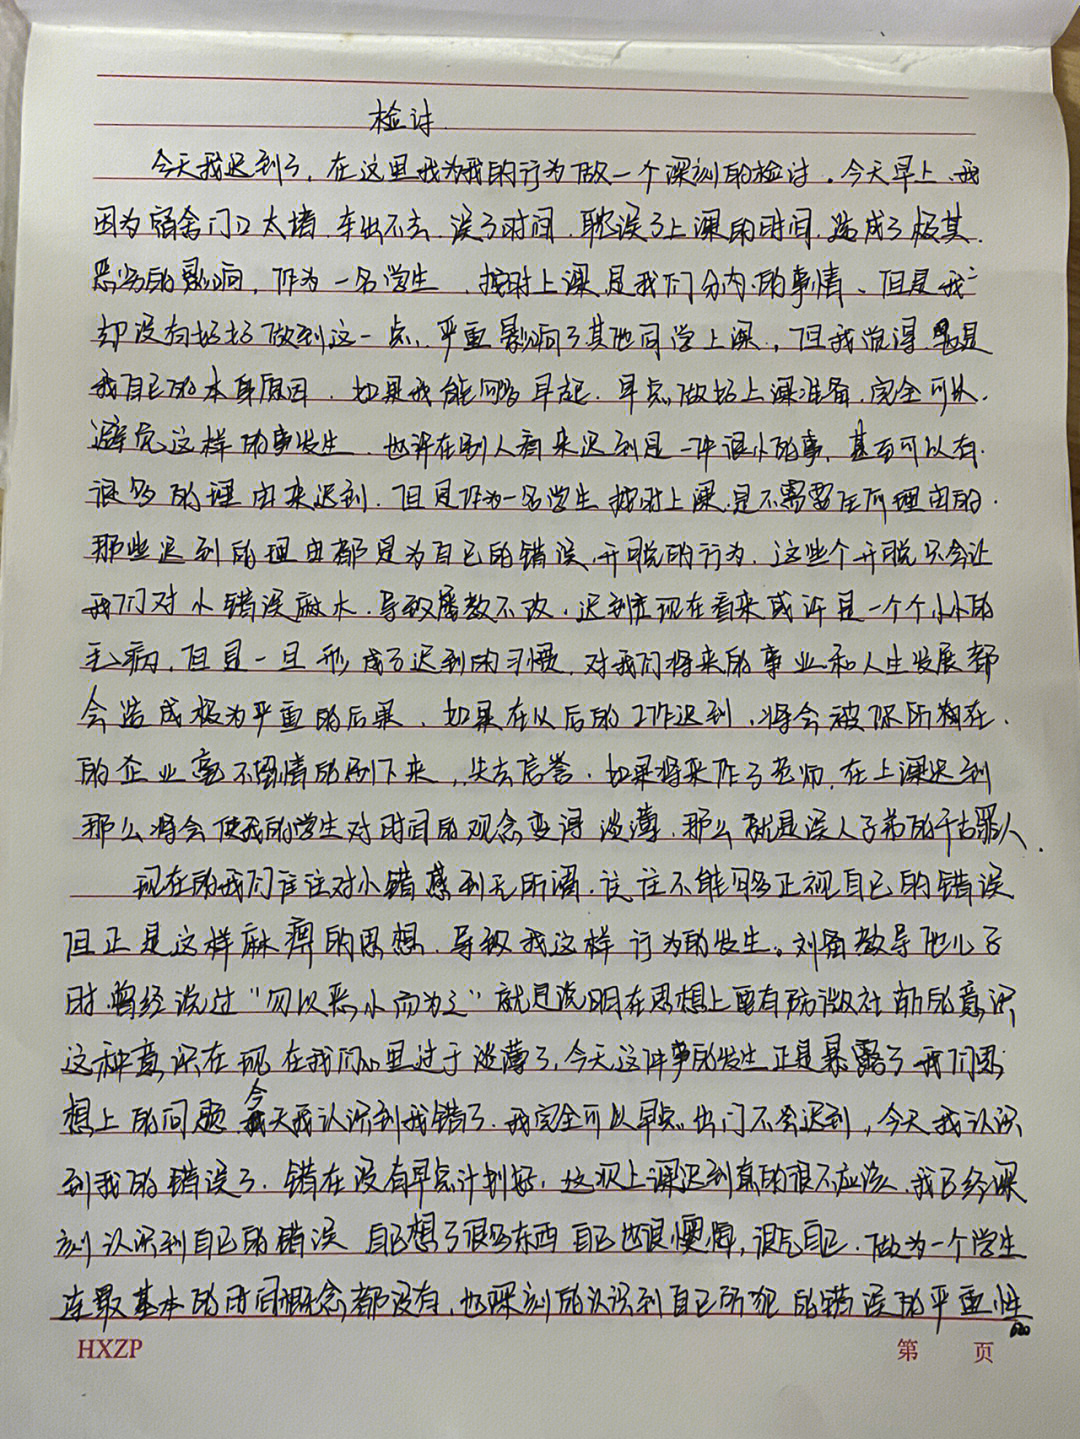 检讨
今天我迟到了，在这里我为我的行为做一个深刻的检讨。今天早上，我
因为宿舍门口太堵，车出不去，误了时间，耽误了上课的时间，造成了极其
恶劣的影响，作为一名学生，按时上课是我们分内的事情。但是我
却没有好好做到这一点，严重影响了其他同学上课，但我觉得 是
我自己的本身原因，如果我能够早起，早点做好上课准备，完全可以
避免这样的事发生，也许在别人看来迟到是一件很小的事，甚至可以有
很多的理由来迟到，但是作为一名学生按时上课是不需要任何理由的，
那些迟到的理由都是为自己的错误开脱的行为，这些个开脱只会让
我们对小错误麻木，导致屡教不改，迟到在现在看来或许是一个个小小的
毛病，但是一旦形成了迟到的习惯，对我们将来的事业和人生发展都
会造成极为严重的后果，如果在以后的工作迟到，将会被你所 在
的企业毫不留情的刷下来，失去信誉，如果将来作了老师，在上课迟到
那么将会使我的学生对时间的观念变得淡薄，那么就是误人子弟的千古罪人，
现在的我们往往对小错感到无所谓，往往不能够正视自己的错误
但正是这样麻痹的思想，导致我这样行为的发生。刘备教导他儿子
时曾经说过“勿以恶小而为之”就是说明在思想上要有防微杜渐的意识，
这种意识在现在我们心里过于淡薄了，今天这件事的发生正是暴露了我们思
想上的问题，今天我认识到我错了，我完全可以早点出门不会迟到，今天我认识
到我的错误了，错在没有早点计划好，这次上课迟到真的很不应该，我已经深
刻认识到自己的错误 自己想了很多东西 自己也很懊悔，很气自己，做为一个学生
连最基本的时间概念都没有，也深刻的认识到自己所犯的错误的严重性
HXZP 第 页